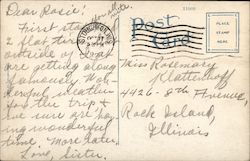 Dear Rosie:
First stop
2 flat tires
outside of
are getting along
famously. Won-
derful weather
for the trip &
we sure are hav-
ing wonderful
time. More later
Love, Sister.
Post
Card
PLACE
STAMP
HERE
Miss Rosemary
Klattenhoff
4426 - 8th Avenue
Rock Island,
Illinois